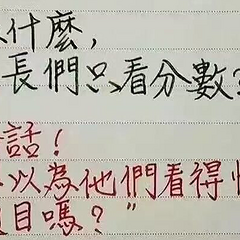 什麼,
長們只看分數?
話!
以為他們看得
目嗎?"